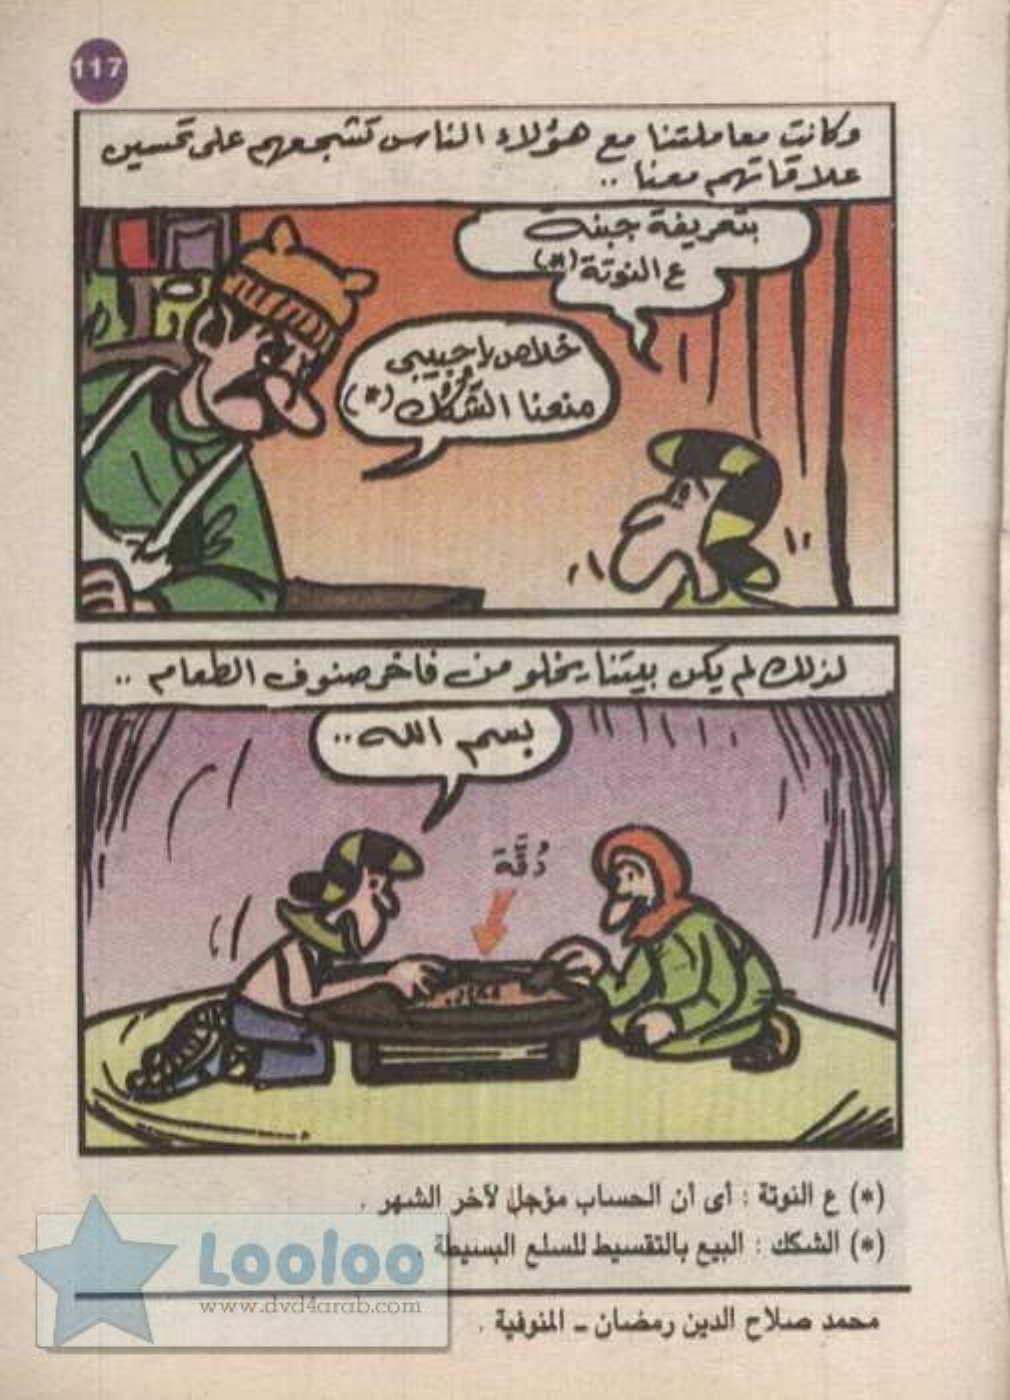 117
وكانت معاملتنا مع هؤلاء الناس تشجعهم على تحسين
علاقاتهم معنا ..
بتعريفة جبنة
ع النوتة (*)
خلاص يا حبيبى
منعنا الشُكُك (*)
لذلك لم يكن بيتنا يخلو من فاخر صنوف الطعام ..
بسم الله ..
دُقَّة
(*) ع النوتة : أى أن الحساب مؤجل لآخر الشهر .
(*) الشكك : البيع بالتقسيط للسلع البسيطة .
محمد صلاح الدين رمضان ـ المنوفية .
Looloo
www.dvd4arab.com